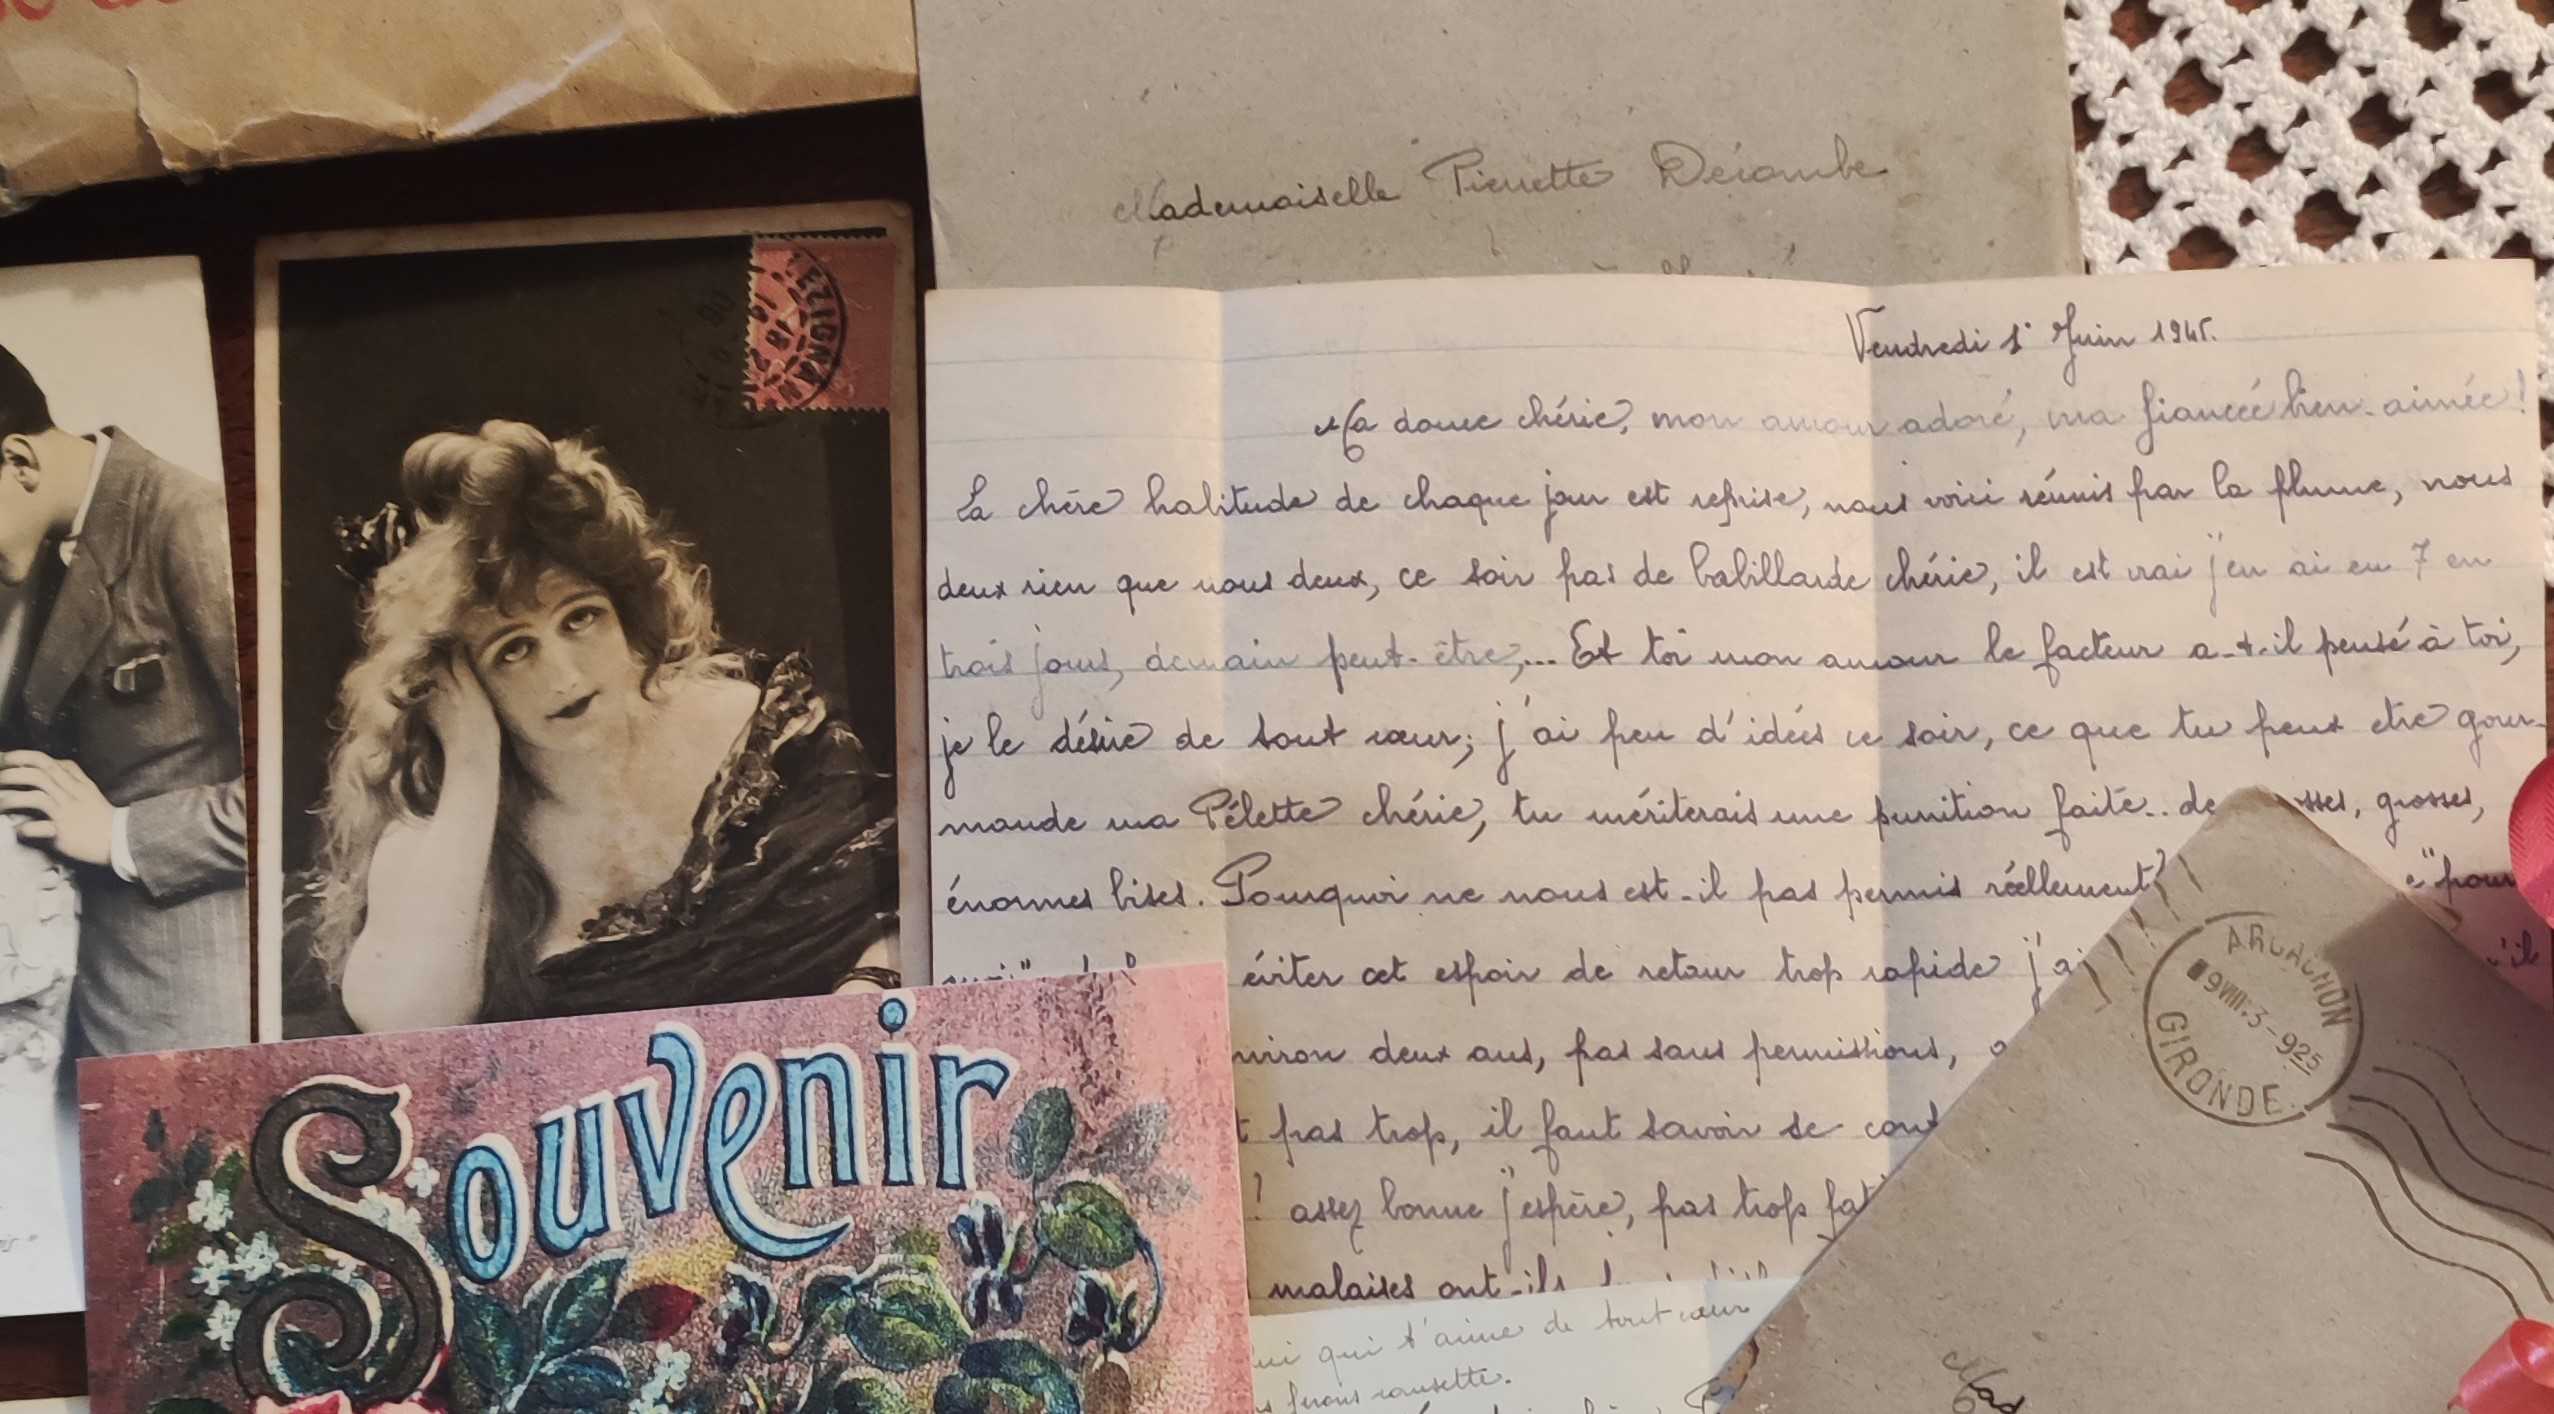 Mademoiselle Pierrette
LEZIGNAN
Vendredi 1° Juin 1945.
Ma douce chérie, mon amour adoré, ma fiancée bien-aimée!
La chère habitude de chaque jour est reprise, nous voici réunis par la plume, nous
deux rien que nous deux, ce soir pas de babillarde chérie, il est vrai j'en ai eu 7 en
trois jours, demain peut-être,... Et toi mon amour le facteur a-t-il pensé à toi,
je le désire de tout cœur; j'ai peu d'idées ce soir, ce que tu peux etre gour-
mande ma Pélette chérie, tu mériterais une punition faite.. de grosses,
énormes bises. Pourquoi ne nous est-il pas permis réellement "pour
éviter cet espoir de retour trop rapide j'ai
deux ans, pas sans permissions,
pas trop, il faut savoir se
! assez bonne j'espère, pas trop
malaises ont-ils
qui t'aime de tout cœur
ferons causette.
Souvenir
ARCACHON
GIRONDE